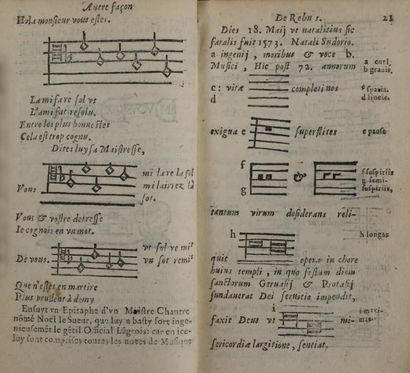 Autre façon
Hola monsieur vous estes.
La mi fa re sol ut
L'ami fat resolu.
Entre les plus bonnestes
Cela est trop cognu.
Dites luy sa Maistresse,
mi la re la sol
Vous
mi lairiez là
sot.
Vous & vostre detresse
Ie cognois en un mot.
ut sol re mi
De vous.
un sot remi
Que n'estes en martire
Plus prudent à demy
Ensuyt un Epitaphe d'un Maistre Chantre
nõmé Noel le Sueur, que luy a basty fort inge-
nieusemẽt le gẽtil Official Lãgrois: car en ice-
luy sont comprises toutes les notes de Musique
De Rebus.
21
Dies 18. Maij ut natalitius sic
fatalis fuit 1573. Natali Sudorio.
a ingenij, moribus & voce b.
Musici, Hic post 72. annorum
b gravis,
c: vitæ
d
completi nos
exigua e
superstites
e pause
f
g
&
f suspiriis
g semi-
suspiriis,
tantum virum desiderans reli-
h
h longas
quit
operæ in choro
huius templi, in quo festum diem
sanctorum Geruasij & Protasij
fundauerat Dei seruitio impendit,
i
faxit Deus ut
mi-
sericordiæ largitione, sentiat.